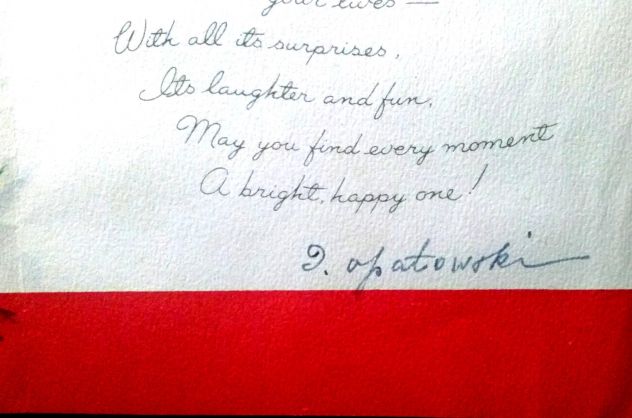 your lives —
With all its surprises,
Its laughter and fun,
May you find every moment
A bright, happy one!
I. Opatowski